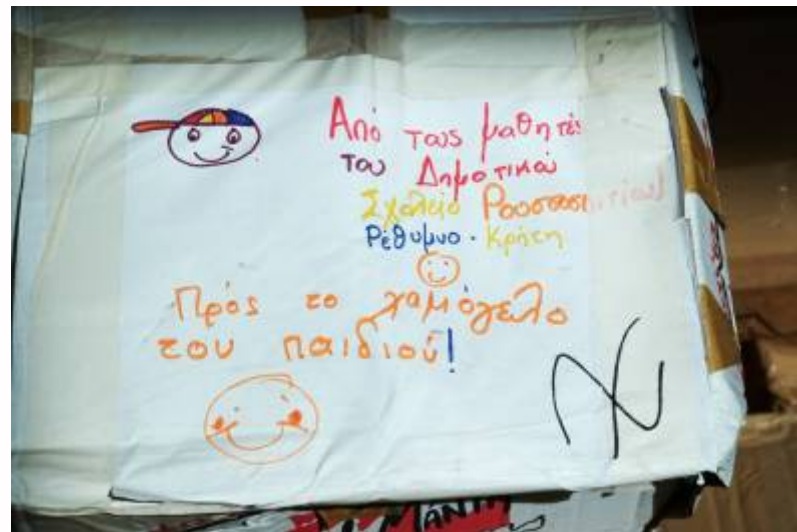 Από τους μαθητές
του Δημοτικού
Σχολείο Ρουσσοσπιτίου
Ρέθυμνο - Κρήτη
Πρός το χαμόγελο
του παιδιού!
ΜΑΝΤ